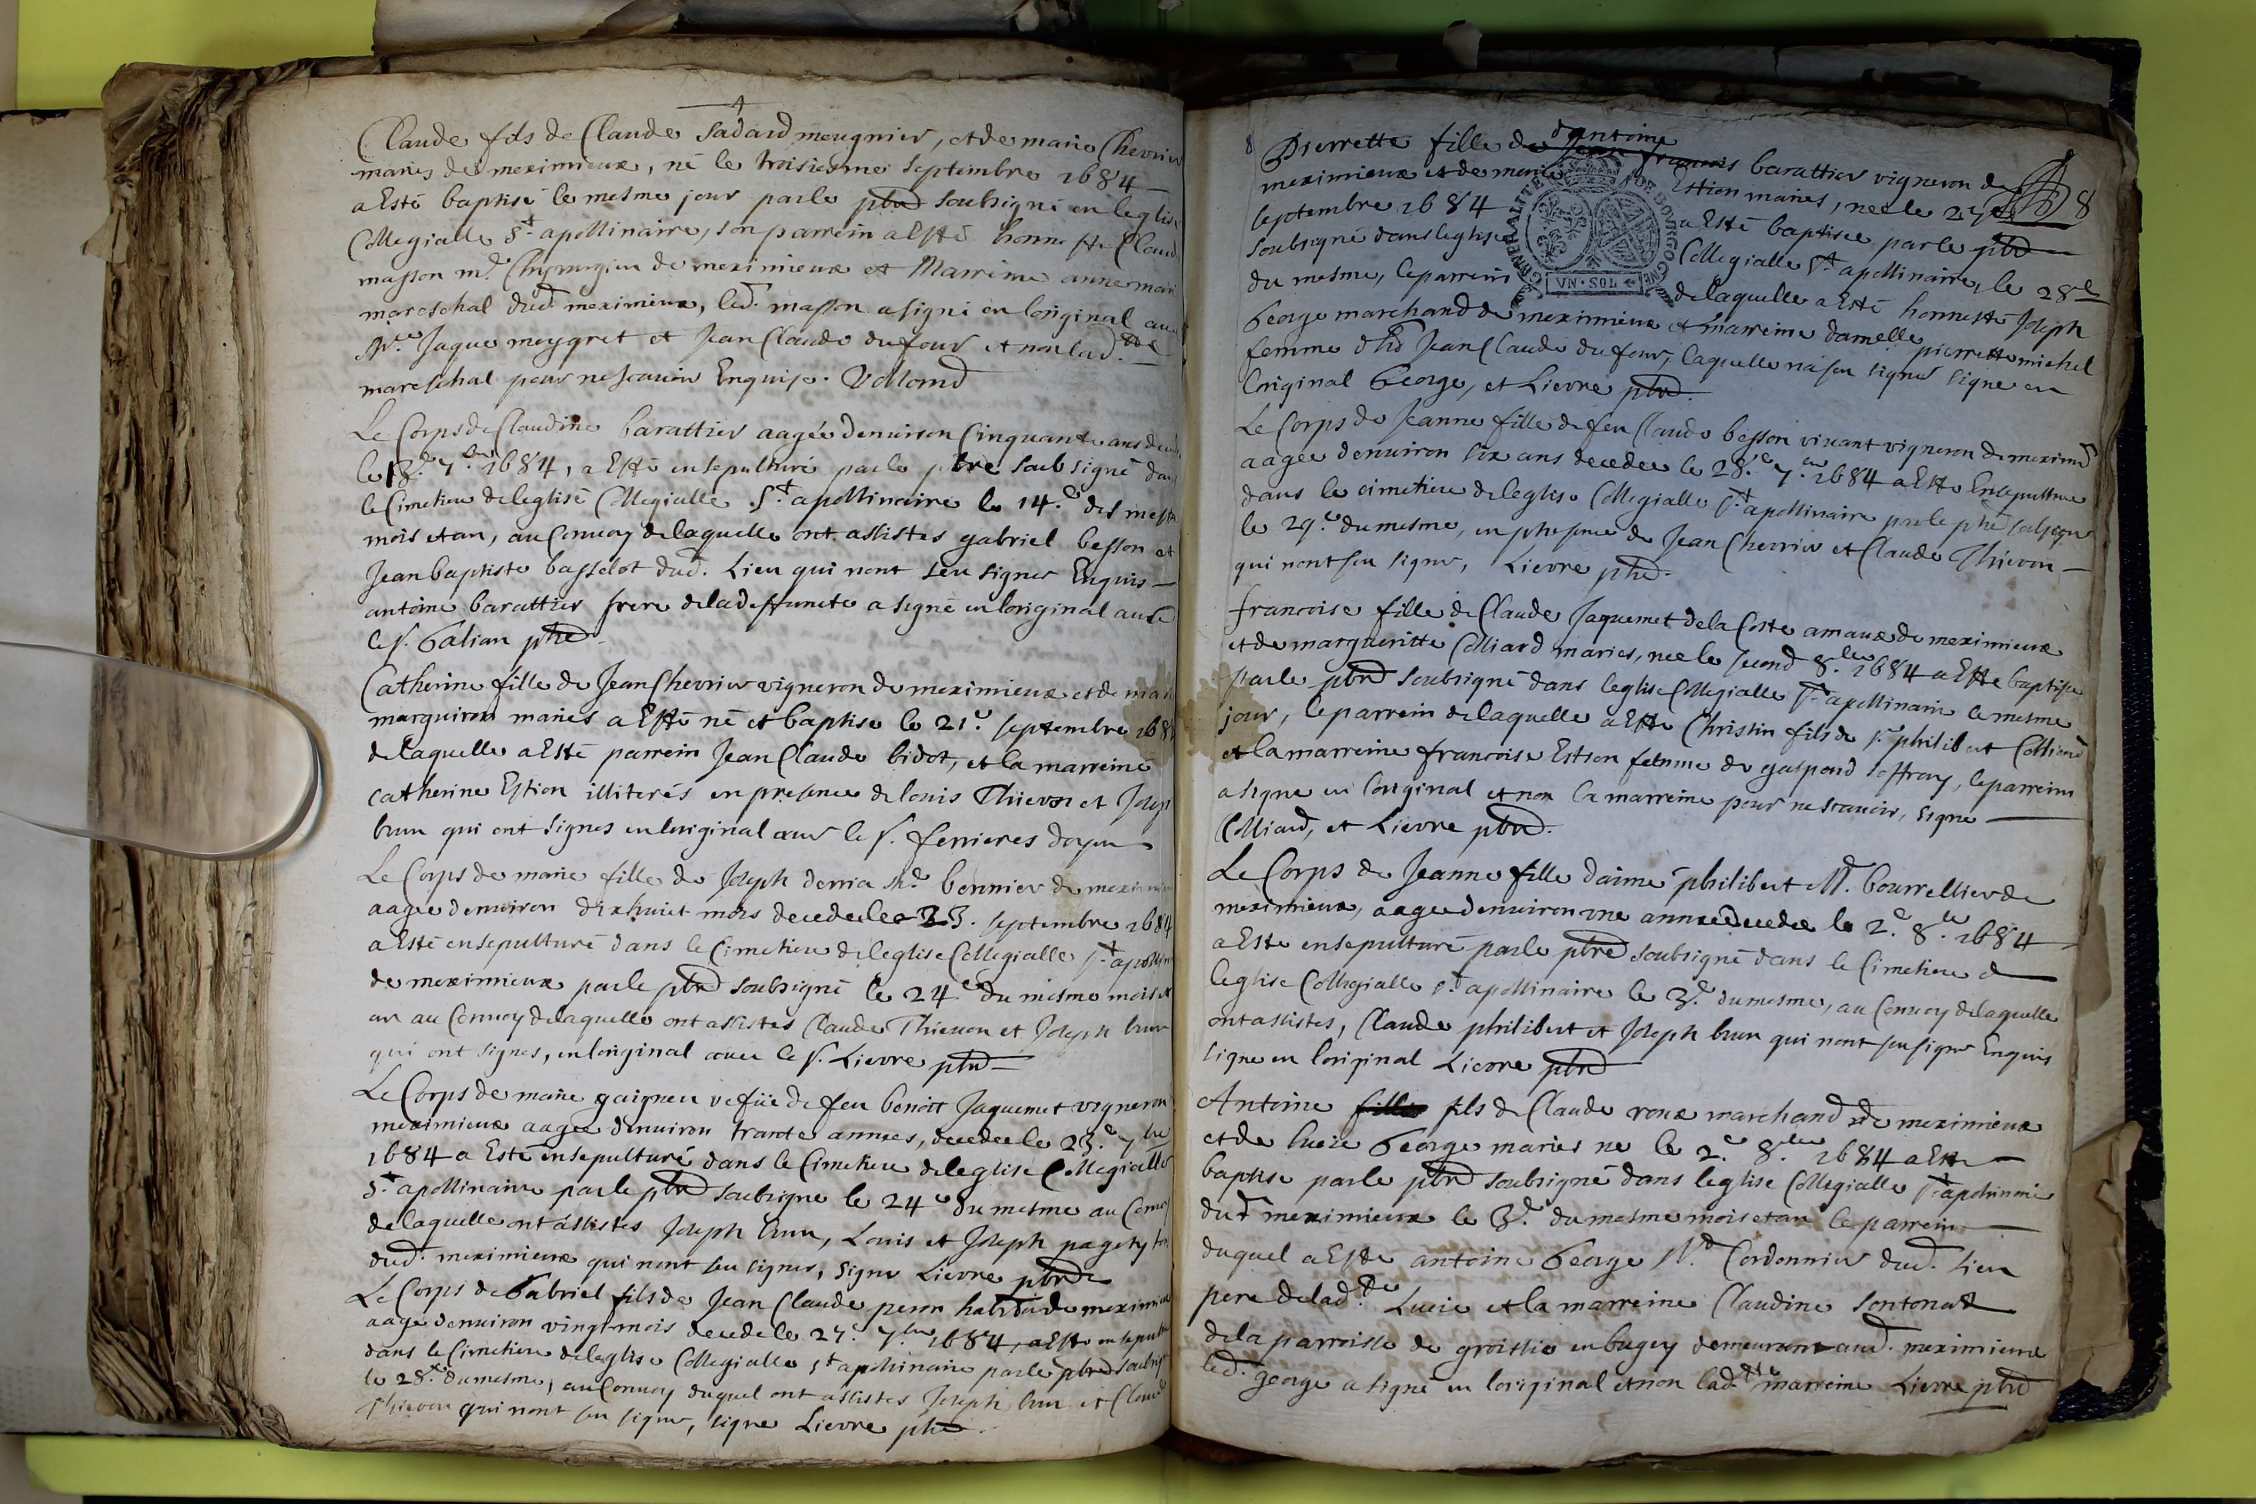 4
Claude fils de Claude sadard meugnier, et de marie Chevrier
mariés de meximieux, né le troisiesme septembre 1684
a Esté baptisé le mesme jour par le pbre soubsigné en leglise
Collegialle St apollinaire, son parrein a Esté honneste Claude
masson md Chyrurgien de meximieux et Marreine anne marie
mareschal dud meximieux, led. masson a signé en loriginal avec
Mre Jaque meygret et Jean Claude dufour et non lad.tte
mareschal pour ne scavoir Enquise. Vollond
Le Corps de Claudine barattier aagée denuiron Cinquante ans decedée
le 13.e 7.bre 1684, a Esté ensepulturé par le pbre soubsigné dans
le Cimetiere de leglise Collegialle St apollinaire le 14.e des mesme
mois et an, au Convoy de laquelle ont assistes gabriel besson et
Jean baptiste basselot dud. Lieu qui nont seu signer Enquis
antoine barattier frere de la deffuncte a signé en loriginal avec
le s. Galian pbre
Catherine fille de Jean Chevrier vigneron de meximieux et de marie
marguiron mariés a Esté né et baptise le 21.e septembre 1684
de laquelle a Esté parrein Jean Claude bidot, et la marreine
catherine Estion illiterés en presence de louis Thievon et Joseph
brun qui ont signes en loriginal avec le s. ferrieres doyen
Le Corps de marie fille de Joseph derria md bennier de meximieux
aagée denuiron dixhuict mois decedee le 23. septembre 1684
a Esté ensepulturé dans le Cimetiere de leglise Collegialle St apollinaire
de meximieux par le pbre soubsigné le 24e du mesme mois et
an au Convoy de laquelle ont assistes Claude Thieuon et Joseph brun
qui ont signes, en loriginal avec le s. Lievre pbre
Le Corps de marie gaigneu vefue de feu benoit Jaquemet vigneron
meximieux aagée denuiron trante annees, decedee le 23.e 7bre
1684 a Esté ensepulturé dans le Cimetiere de leglise Collegialle
St apollinaire par le pbre soubsigne le 24e du mesme au Convoy
de laquelle ont assistes Joseph brun, Louis et Joseph pagety
dud. meximieux qui nont seu signer, signe Lievre pbre
Le Corps de Gabriel fils de Jean Claude peron habitt de meximieux
aage denuiron vingt mois decede le 27.e 7bre 1684, a Esté ensepulturé
dans le Cimetiere de leglise Collegialle St apolinaire par le pbre soubsigne
le 28.e du mesme, au Convoy duquel ont assistes Joseph brun et Claude
Thievon qui nont seu signer, signe Lievre pbre
8
d'antoine
Pierrette fille de Jean francois barattier vigneron de
8
meximieux et de marie Estion mariés, nee le 27e
septembre 1684 a Esté baptisee par le pbre
soubsigné dans leglise Collegialle St apollinaire, le 28e
du mesme, le parrein de laquelle a Esté honneste Joseph
GENERALITE DE BOVRGOGNE
VN·SOL
George marchand de meximieux et marreine damelle pierrette michel
femme d Jean Claude dufour, laquelle na seu signer signe en
loriginal George, et Lievre pbre.
Le Corps de Jeanne fille de feu Claude besson vivant vigneron de meximieux
aagée denuiron six ans decedee le 28.e 7.bre 1684 a Esté Ensepulturee
dans le cimetiere de leglise Collegialle St apollinaire par le pbre soubsigne
le 29.e du mesme, en presence de Jean Chevrier et Claude Thievon
qui nont seu signer, Lievre pbre.
francoise fille de Claude Jaquemet de la Coste amaux de meximieux
et de margueritte Colliard maries, nee le second 8.bre 1684 a Esté baptisee
par le pbre soubsigné dans leglise Collegialle St apollinaire le mesme
jour, le parrein de laquelle a Esté Christin fils de s.r philibert Colliard
et la marreine francoise Estion femme de gaspard soffray, le parrein
a signe en loriginal et non la marreine pour ne scavoir, signe
Colliard, et Lievre pbre.
Le Corps de Jeanne fille daimé philibert Md. bourrellier de
meximieux, aagée denuiron une année decedee le 2.e 8.bre 1684
a Esté ensepulturé par le pbre soubsigné dans le Cimetiere de
leglise Collegialle St apollinaire le 3.e du mesme, au Convoy de laquelle
ont assistes, Claude philibert et Joseph brun qui nont seu signer Enquis
signe en loriginal Lievre pbre
Antoine fille fils de Claude roux marchand de meximieux
et de lucie George maries ne le 2.e 8.bre 1684 a Esté
baptise par le pbre soubsigné dans leglise Collegialle St apolinaire
dud meximieux le 3.e du mesme mois et an le parrein
duquel a Esté antoine George Md. Cordonnier dud. Lieu
pere de lad.tte Lucie et la marreine Claudine sontonax
de la parroisse de groissie en bugey demeurant aud. meximieux
led. george a signé en loriginal et non lad.tte marreine Lievre pbre